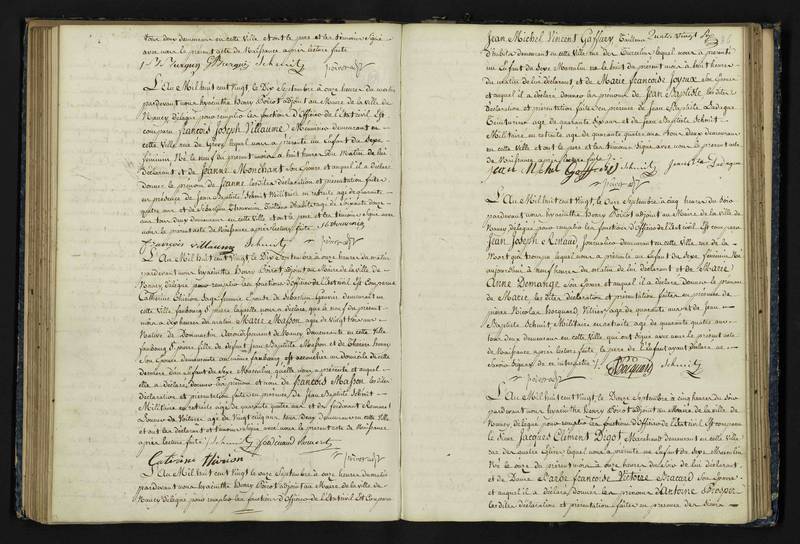 tous deux demeurant en cette Ville et ont le pere et les témoins signé
avec nous le présent acte de Naissance après lecture faite
Schmitz
L'An Mil huit cent vingt, le Dix Septembre à onze heures du matin
pardevant nous hyacinthe henry Poirot adjoint au Maire de la Ville de
Nancy délégué pour remplir les fonctions d'Officier de l'Etat civil Est
comparu François Joseph Villaume Menuisier demeurant en
cette Ville rue de Grève lequel nous a présenté un Enfant du Sexe
féminin Né le neuf du présent mois à huit heures du Matin de lui
Déclarant et de Jeanne Monchant Son Epouse et auquel il a déclaré
donner le prénom de Jeanne les dites déclaration et présentation faites
en présence de Jean Baptiste Schmit Militaire en retraite agé de quarante
quatre ans et de Sébastien
ans tous deux demeurant en cette Ville et ont le pere et les témoins signé avec
nous le présent acte de Naissance après lecture faite
françois villaume Schmitz
L'An Mil huit cent vingt le Dix Septembre à onze heures du matin
pardevant nous hyacinthe henry Poirot adjoint au Maire de la Ville de
Nancy délégué pour remplir les fonctions d'Officier de l'Etat civil Est Comparue
Catherine Thirion Sage femme Epouse de Sébastien demeurant en
cette Ville faubourg St pierre laquelle nous a déclaré que le neuf du présent
mois à dix heures du matin Marie Masson agée de vingt trois ans
Native de Dommartin arrondissement de Nancy demeurante en cette Ville
faubourg St pierre, fille de défunt Jean Baptiste Masson et de Thérèse
son Epouse demeurante au même faubourg, est accouchée au domicile de cette
dernière d'un Enfant du Sexe Masculin, qu'elle nous a présenté et auquel
elle a déclaré donner les prénom et nom de François Masson les dites
déclaration et présentation faites en présence de Jean Baptiste Schmit
Militaire en retraite agé de quarante quatre ans et de ferdinand
Loueur de Voitures agé de vingt cinq ans tous deux demeurant en cette Ville
et ont les déclarant et témoins signé avec nous le présent acte de Naissance
après lecture faite Schmitz
Caterine thirion
L'An Mil huit cent vingt le onze Septembre à onze heures du matin
pardevant nous hyacinthe henry Poirot adjoint au Maire de la Ville de
Nancy délégué pour remplir les fonctions d'Officier de l'Etat civil Est Comparu
Jean Michel Vincent Gaffrey Tailleur
d'habits demeurant en cette Ville rue lequel nous a présenté
un Enfant du Sexe Masculin né le huit du présent mois à huit heures
du matin de lui déclarant et de Marie françoise Joyeux Son Epouse
et auquel il a déclaré donner les prénoms de Jean Baptiste les dites
déclaration et présentation faites en présence de Jean Baptiste
agé de quarante ans et de Jean Baptiste Schmit
Militaire en retraite agé de quarante quatre ans tous deux demeurant
en cette Ville et ont le pere et les témoins signé avec nous le présent acte
de Naissance après lecture faite
Schmitz
L'An Mil huit cent vingt, le onze Septembre à cinq heures du soir
pardevant nous hyacinthe henry Poirot adjoint au Maire de la Ville de
Nancy délégué pour remplir les fonctions d'Officier de l'Etat civil Est comparu
Jean Joseph Arnaud Journalier demeurant en cette Ville rue de la
lequel nous a présenté un Enfant du Sexe féminin Né
aujourd'hui à neuf heures du matin de lui déclarant et de Marie
Anne Demange Son Epouse et auquel il a déclaré donner le prénom
de Marie, les dites déclaration et présentation faites en présence de
pierre Nicolas Bocquard Vitrier agé de quarante ans et de Jean
Baptiste Schmit Militaire en retraite agé de quarante quatre ans
tous deux demeurant en cette Ville, qui ont signé avec nous le présent acte
de Naissance après lecture faite, le pere de l'Enfant ayant déclaré ne
savoir signer de ce interpellé
Bocquard Schmitz
L'An Mil huit cent vingt, le Douze Septembre à cinq heures du soir
pardevant nous hyacinthe henry Poirot adjoint au Maire de la Ville de
Nancy délégué pour remplir les fonctions d'Officier de l'Etat civil Est comparu
le Sieur Jacques Clément Digot Marchand demeurant en cette Ville
rue des quatre Eglises lequel nous a présenté un Enfant du Sexe Masculin
Né le onze du présent mois à onze heures du soir de lui déclarant
et de Dame Barbe françoise Victoire Bracard Son Epouse
et auquel il a déclaré donner les prénoms d'Antoine Prosper
les dites déclaration et présentation faites en présence des Sieurs